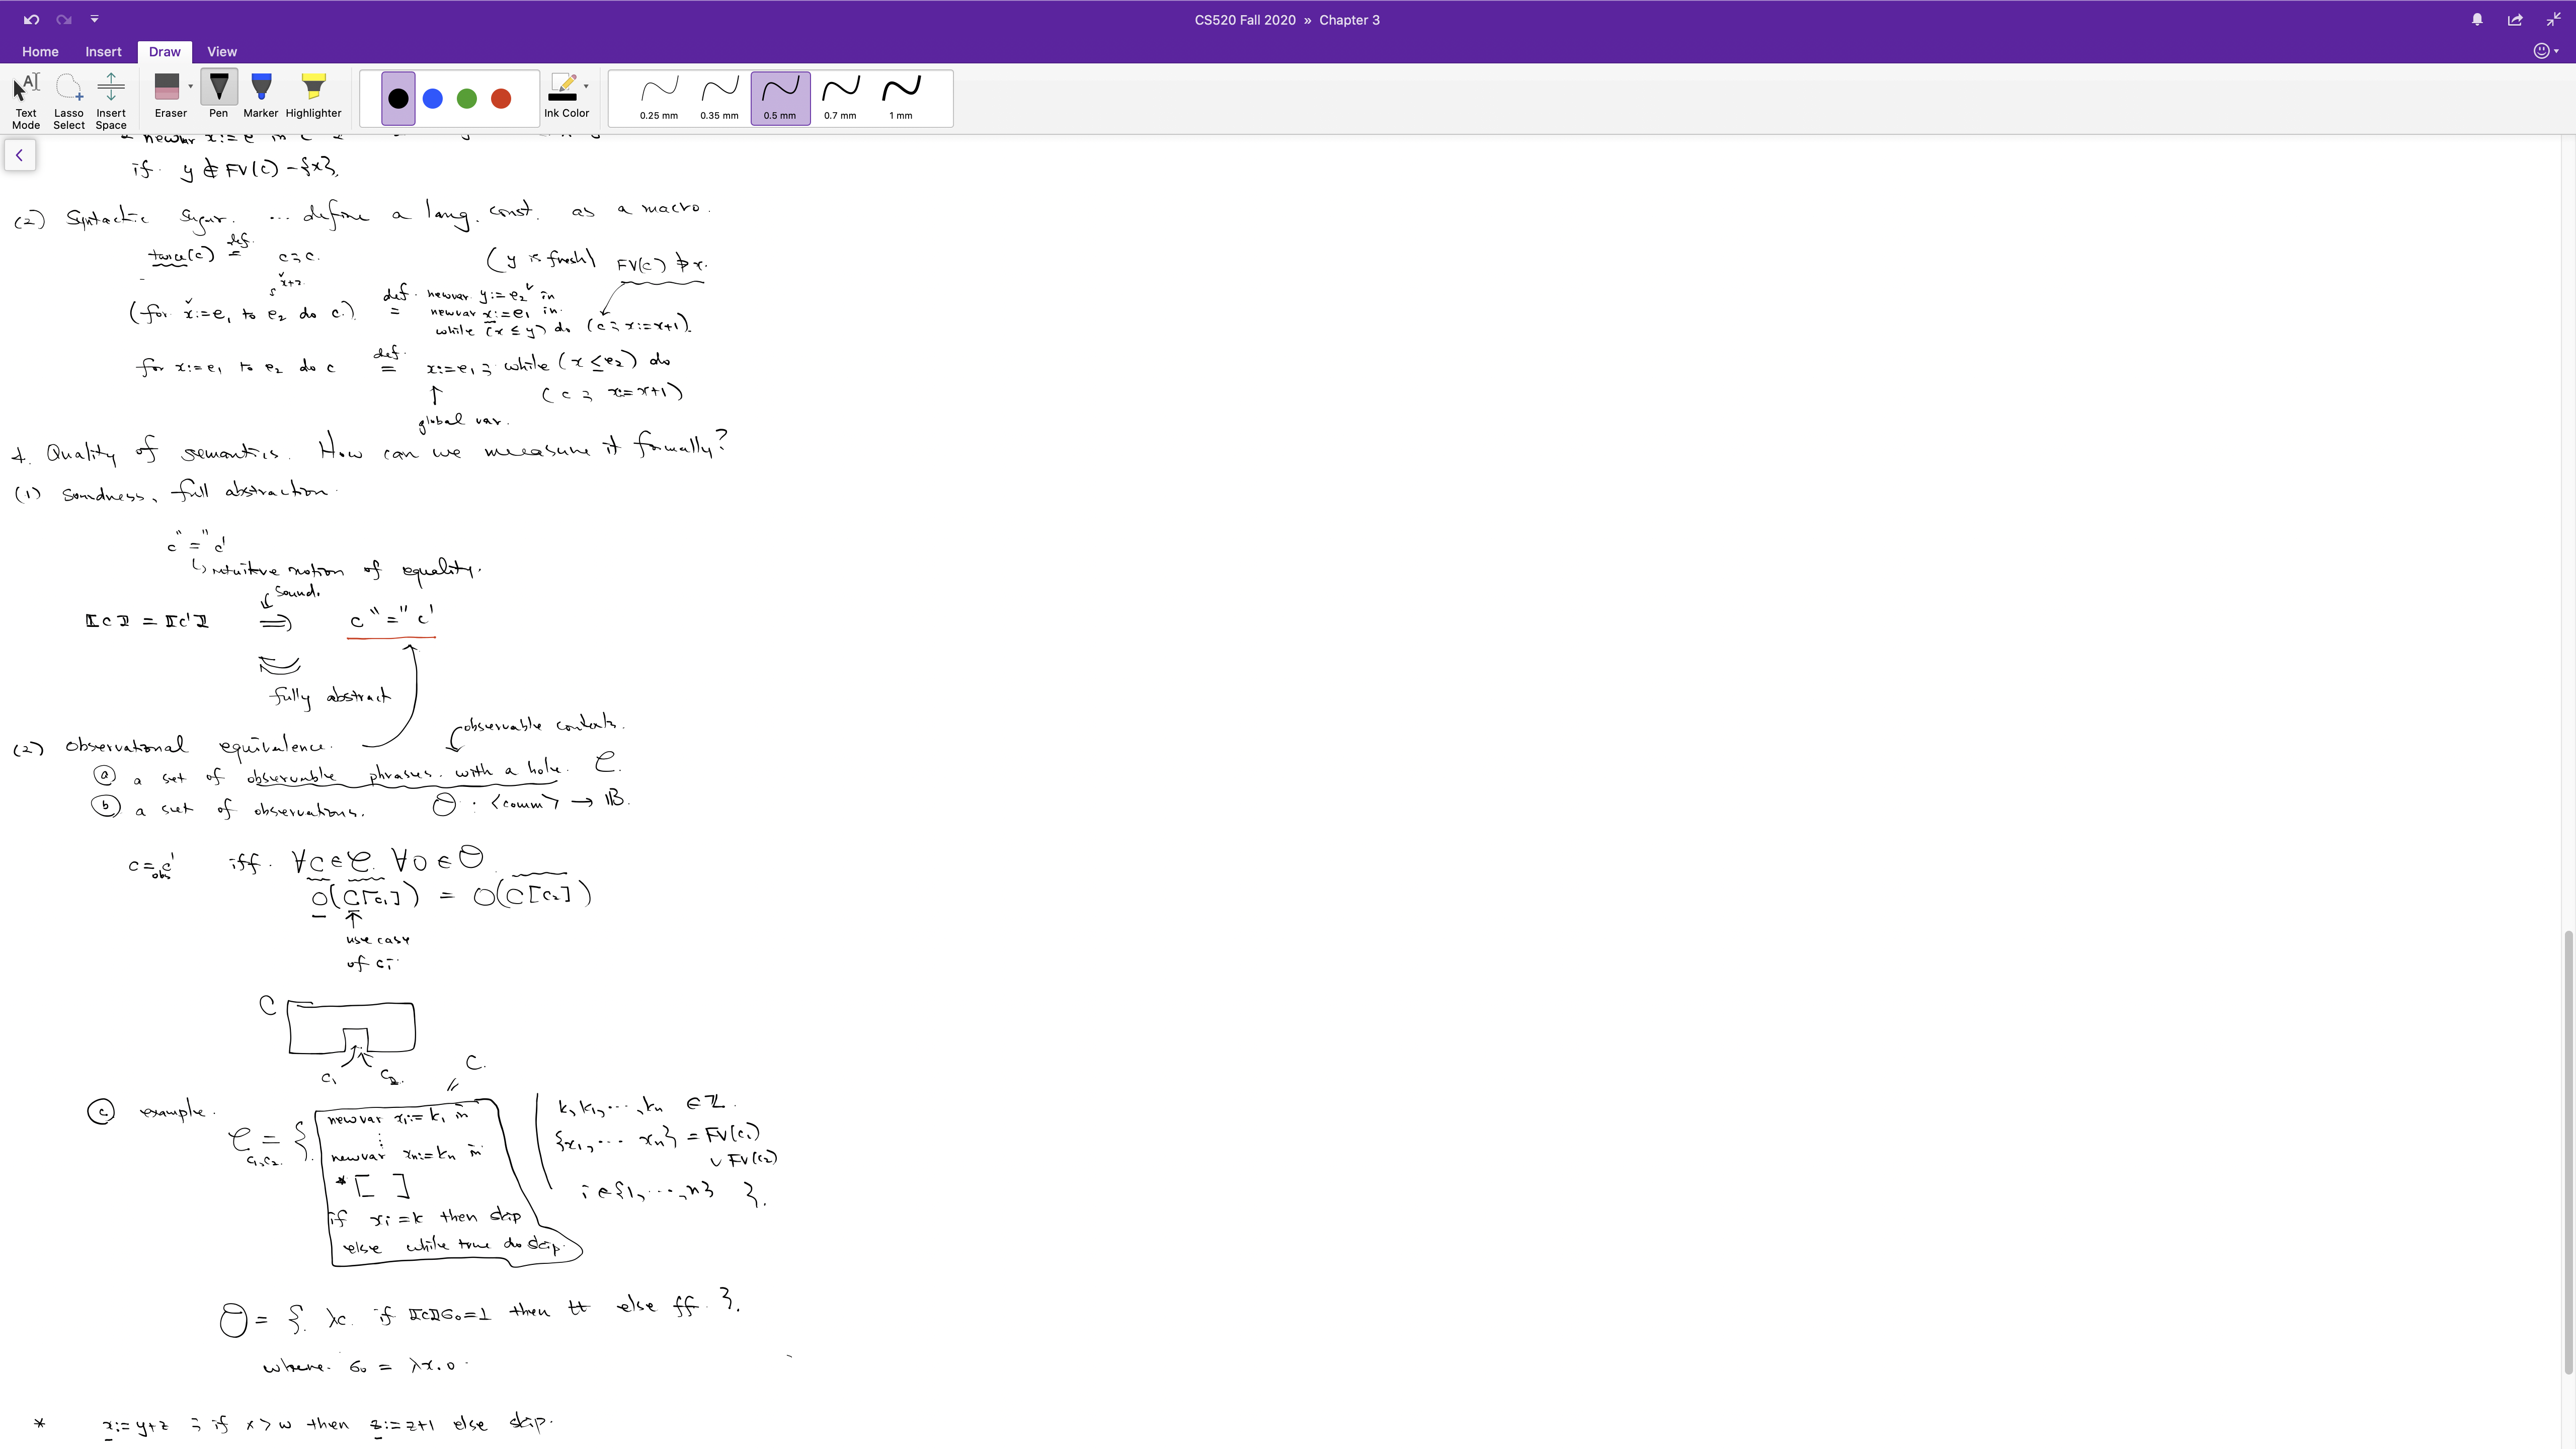 CS520 Fall 2020 » Chapter 3
Home Insert Draw View
Text Mode
Lasso Select
Insert Space
Eraser
Pen
Marker
Highlighter
Ink Color
0.25 mm
0.35 mm
0.5 mm
0.7 mm
1 mm
newvar x:=e in c
if y ∉ FV(c) - {x}.
(2) Syntactic sugar. ... define a lang. const. as a macro.
twice(c) def= c; c.
(y is fresh) FV(c) ∌ x.
x+z
(for x:=e₁ to e₂ do c.) def= newvar y:=e₂ in
newvar x:=e₁ in
while (x ≤ y) do (c; x:=x+1).
for x:=e₁ to e₂ do c def= x:=e₁; while (x ≤ e₂) do
(c; x:=x+1)
↑
global var.
4. Quality of semantics. How can we measure it formally?
(1) Soundness, full abstraction.
c "=" c'
↳ intuitive notion of equality.
sound.
⟦c⟧ = ⟦c'⟧ ⟹ c "=" c'
fully abstract
(2) Observational equivalence.
observable contexts.
ⓐ a set of observable phrases with a hole. 𝒞.
ⓑ a set of observations. Θ : <comm> → 𝔹.
c =obs c' iff. ∀C∈𝒞. ∀O∈Θ.
O(C[c₁]) = O(C[c₂])
↑
use case
of ci
C
c₁ c₂.
C.
ⓒ example.
𝒞c₁,c₂ = {
newvar x₁:=k₁ in
⋮
newvar xn:=kn in
* [ ]
if xi = k then skip
else while true do skip.
| k, k₁, ..., kn ∈ ℤ.
{x₁, ... xn} = FV(c₁)
∪ FV(c₂)
i ∈ {1, ..., n} }.
Θ = { λc. if ⟦c⟧σ₀=⊥ then tt else ff. }.
where σ₀ = λx.0.
* x:= y+z ; if x > w then z:= z+1 else skip.